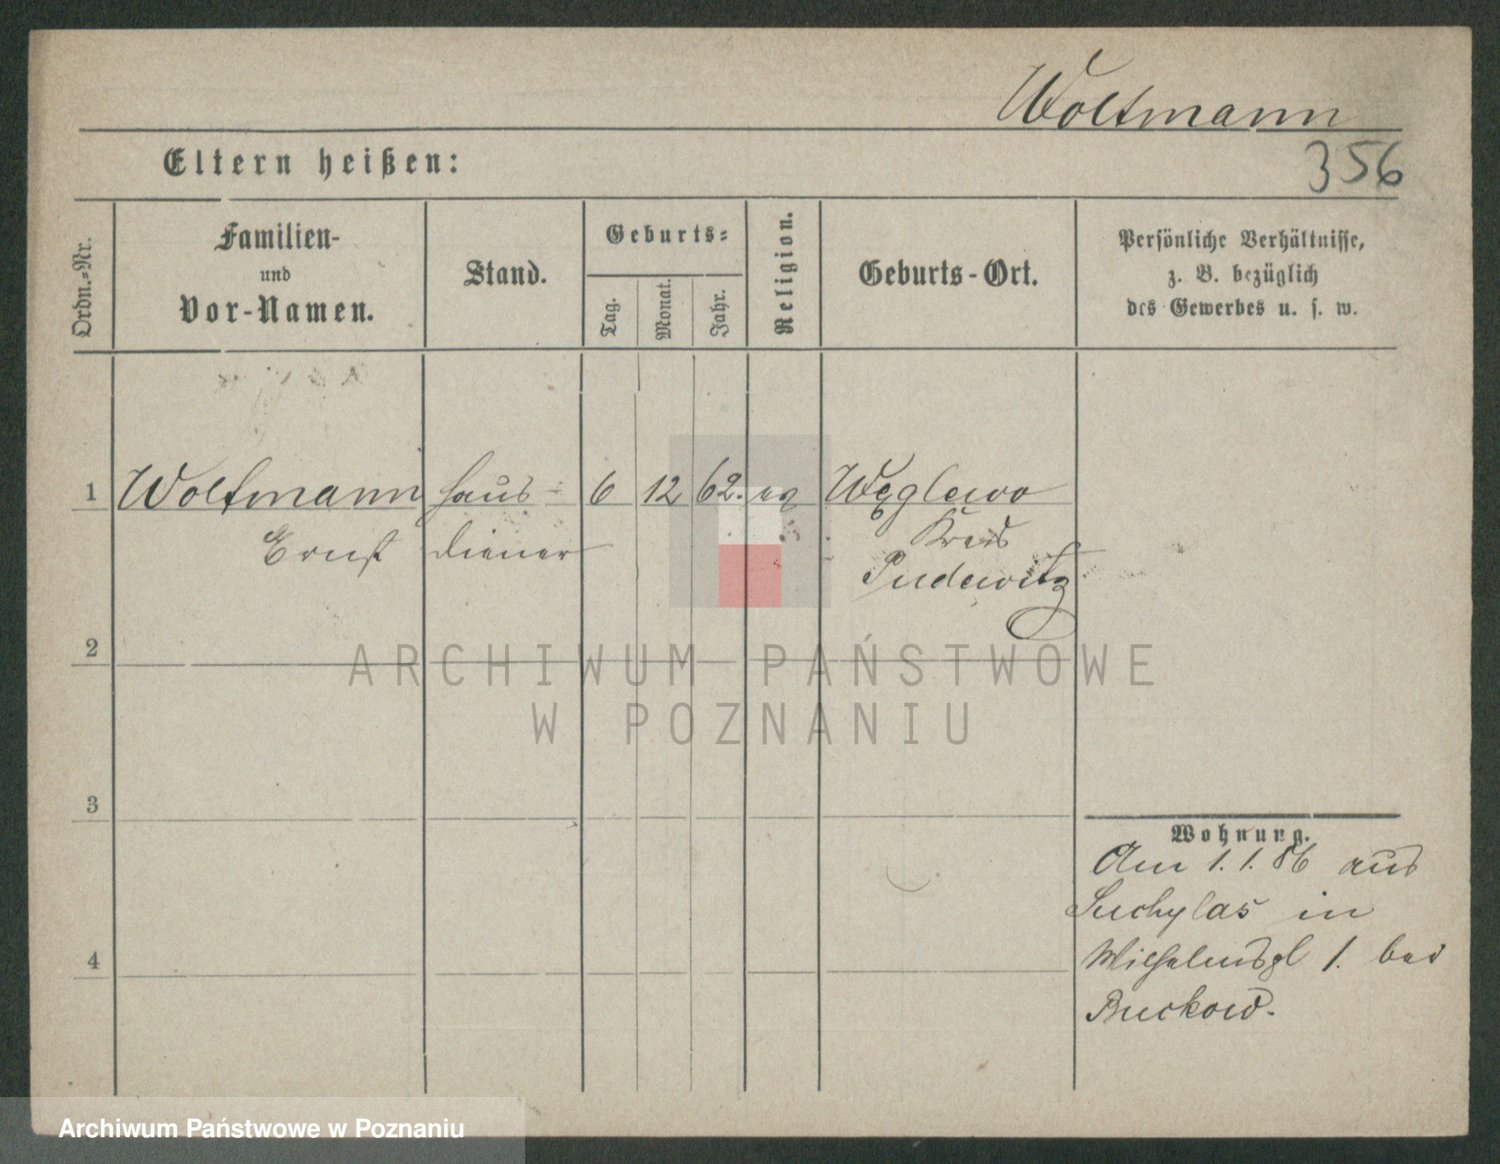 Woltmann
Eltern heißen:
356
Ordn.-Nr.
Familien-
und
Vor-Namen.
Stand.
Geburts-
Tag.
Monat.
Jahr.
Religion.
Geburts-Ort.
Persönliche Verhältnisse,
z. B. bezüglich
des Gewerbes u. s. w.
1 Woltmann Haus- 6 12 62. ev Węglewo
Ernst diener Kreis
Pudewitz
2
ARCHIWUM PAŃSTWOWE
W POZNANIU
3
Wohnung.
Am 1.1.86 aus
Suchylas in
Wilhelmspl 1. bei
Buckow.
4
Archiwum Państwowe w Poznaniu